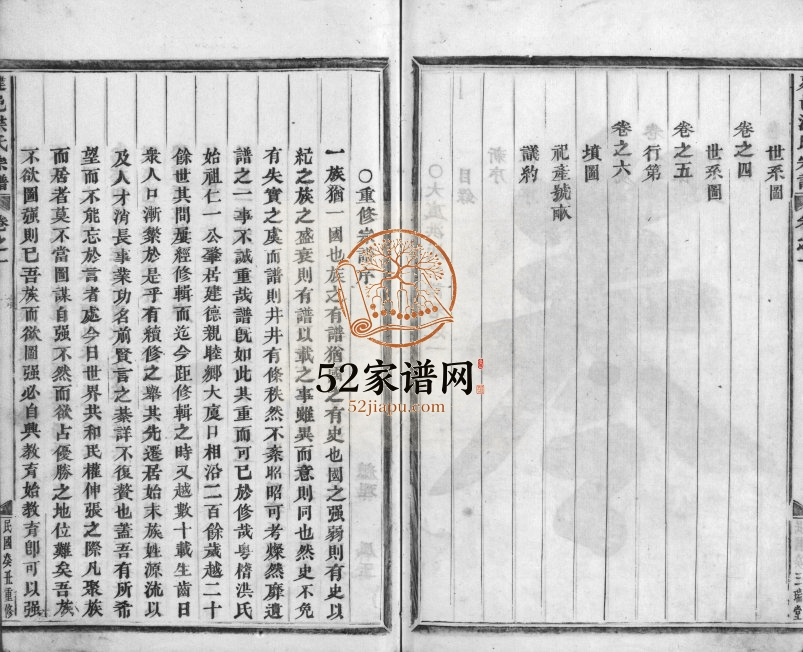 世系圖
卷之四
世系圖
卷之五
行第
卷之六
墳圖
祀產號畝
議約
三瑞堂
〇重修宗譜序
一族猶一國也族之有譜猶國之有史也國之強弱則有史以
紀之族之盛衰則有譜以載之事雖異而意則同也然史不免
有失實之虞而譜則井井有條秩然不紊昭昭可考燦然靡遺
譜之一事不誠重哉譜既如此其重而可已於修哉粵稽洪氏
始祖仁一公肇居建德親睦鄉大廈口相沿二百餘歲越二十
餘世其間屢經修輯而迄今距修輯之時又越數十載生齒日
衆人口漸繁於是乎有續修之舉其先遷居始末族姓源流以
及人才消長事業功名前賢言之綦詳不復贅也蓋吾有所希
望而不能忘於言者處今日世界共和民權伸張之際凡聚族
而居者莫不當圖謀自強不然而欲占優勝之地位難矣吾族
不欲圖強則已吾族而欲圖強必自興教育始教育卽可以強
洪氏宗譜
卷之一
民國癸丑重修
52家谱网
52jiapu.com